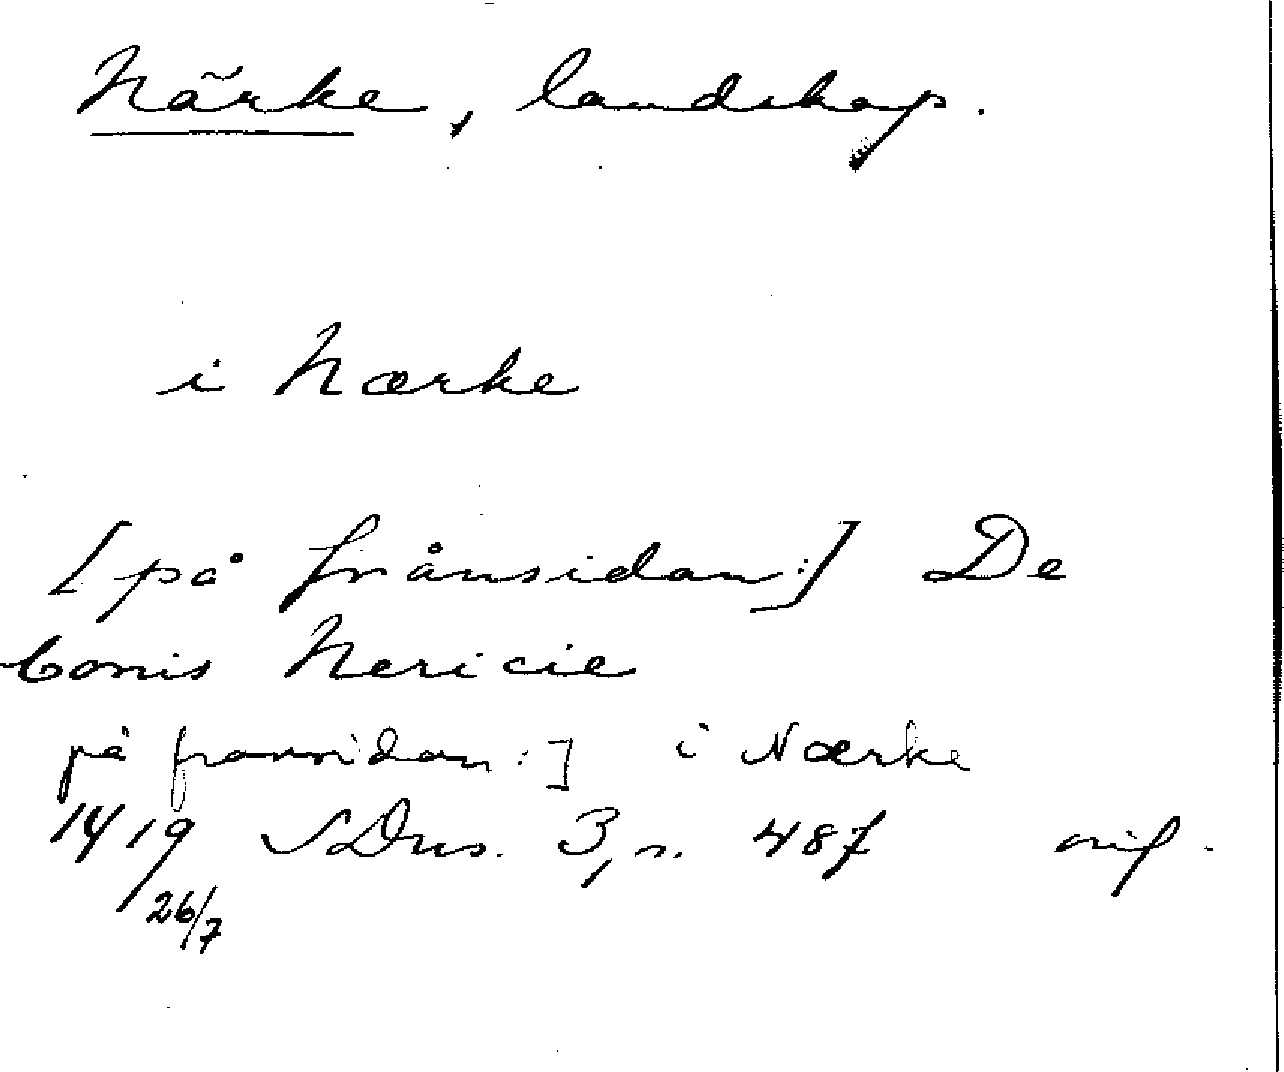 Närke, landskap.
i Nærke
[på frånsidan:] De
bonis Nericie
på framsidan:] i Nærke
1419 SDns. 3, s. 487 orig.
26/7